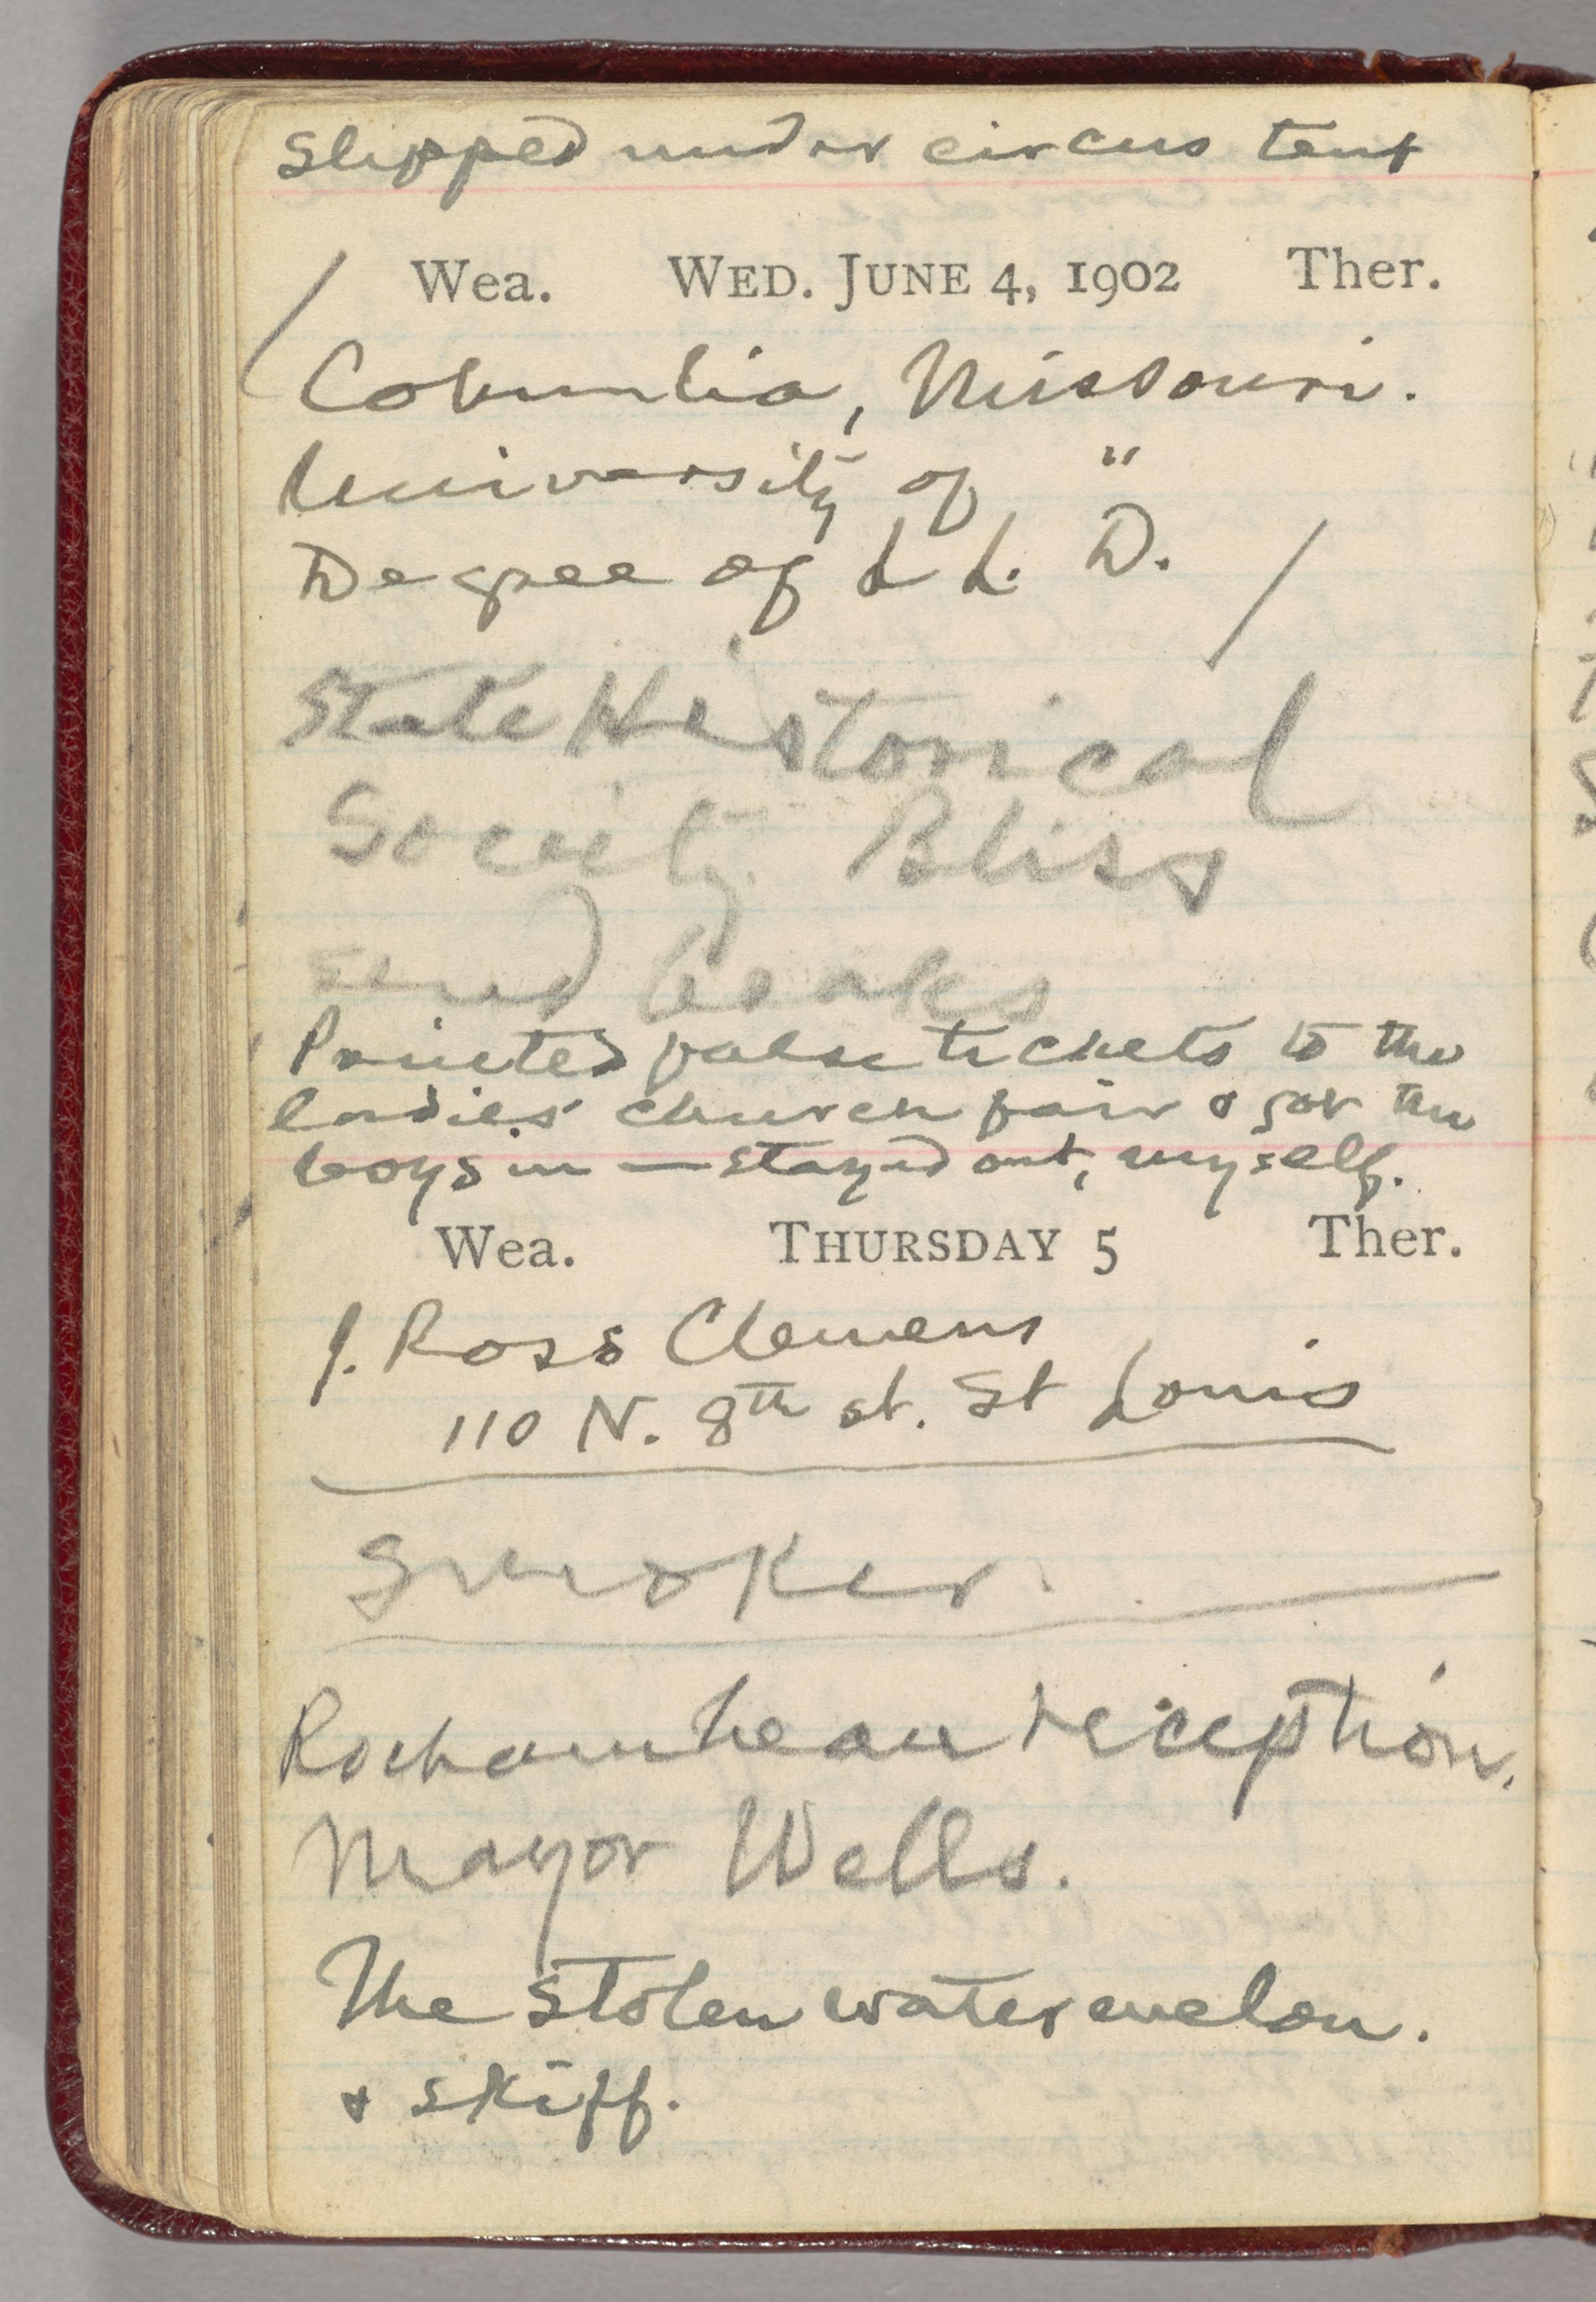 Slipped under circus tent
Wea. WED. JUNE 4, 1902 Ther.
/ Columbia, Missouri.
University of "
Degree of L L. D. /
State Historical
Society Bliss
send books
Printed false tickets to the
ladies' church fair & got the
boys in — stayed out, myself.
Wea. THURSDAY 5 Ther.
J. Ross Clemens
110 N. 8th st. St Louis
Smoker. —
Rochambeau reception.
Mayor Wells.
The stolen watermelon.
& skiff.